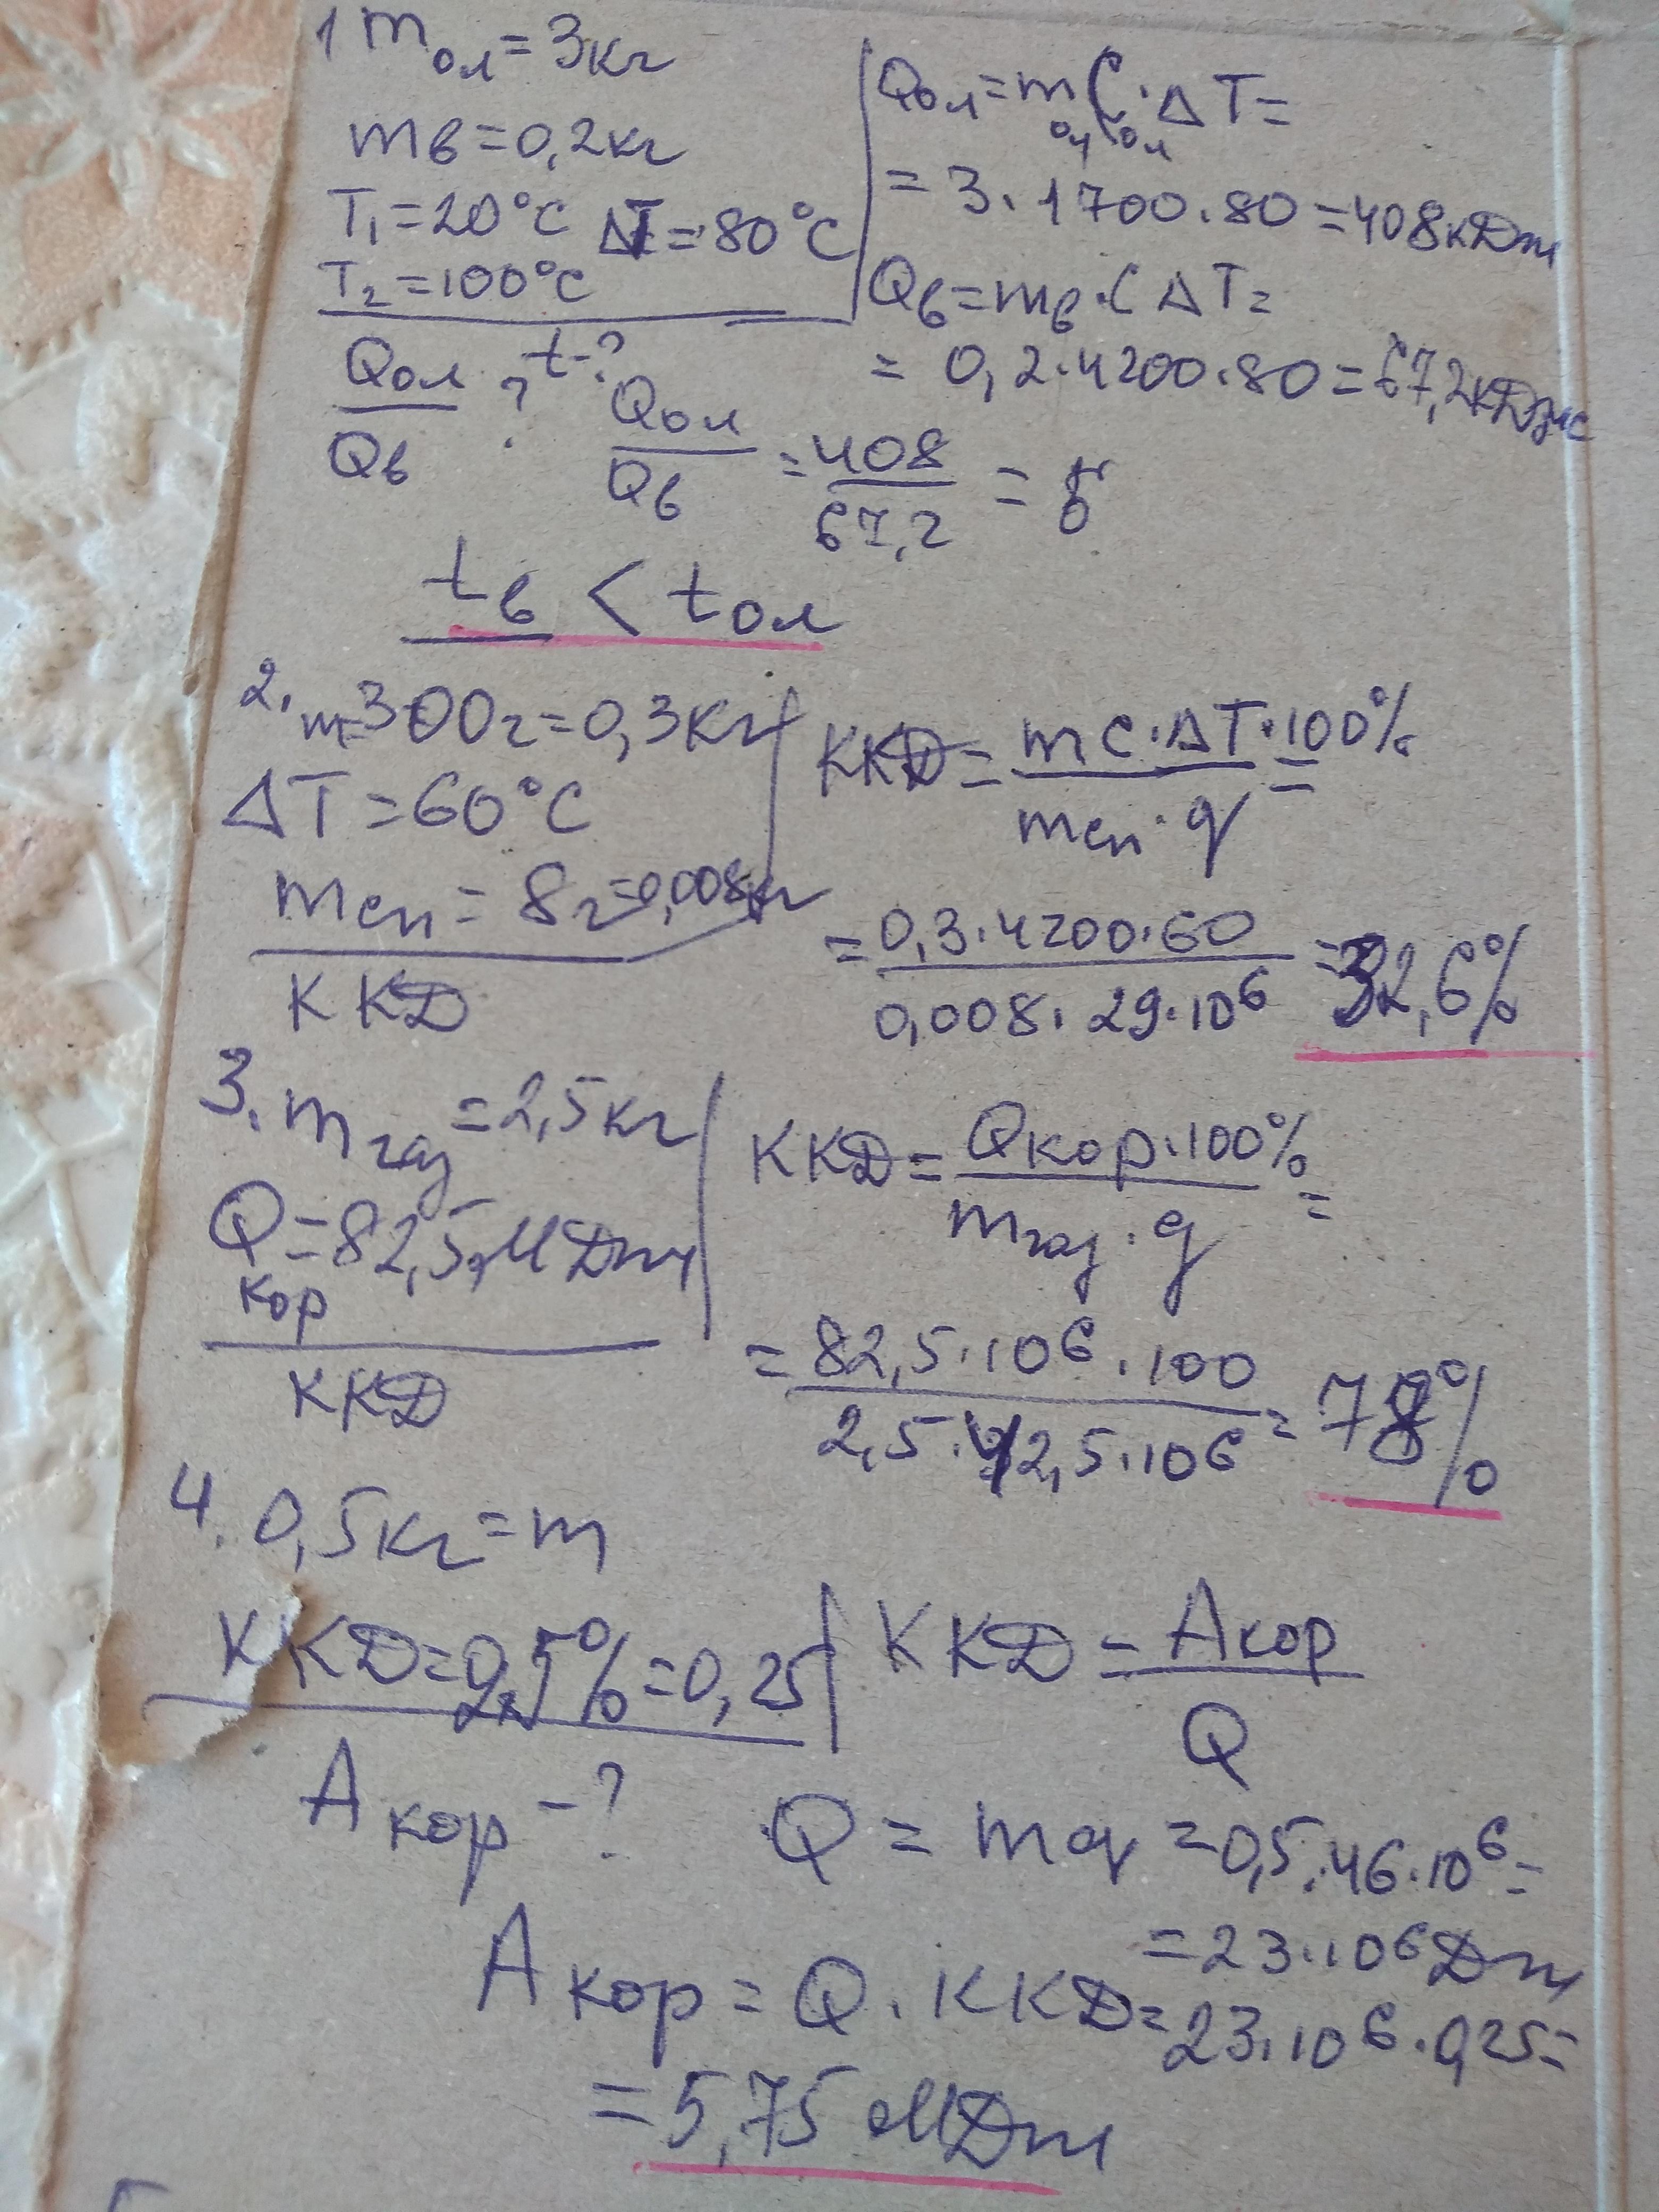 1 m ол = 3кг
mв = 0,2кг
T₁ = 20°C ΔT = 80°C
T₂ = 100°C
Qол / Qв ? t-?
Qол = m ол C ол · ΔT =
= 3 · 1700 · 80 = 408кДж
Qв = mв · C ΔT =
= 0,2 · 4200 · 80 = 67,2кДж
Qол / Qв = 408 / 67,2 =
tв < tол
2. m = 300г = 0,3кг
ΔT = 60°C
mсп = 8г = 0,008кг
ККД
ККД = mC · ΔT · 100% / mсп · q =
= 0,3 · 4200 · 60 / 0,008 · 29 · 10⁶ = 32,6%
3. mгаз = 2,5кг
Qкор = 82,5 МДж
ККД
ККД = Qкор · 100% / mгаз · q =
= 82,5 · 10⁶ · 100 / 2,5 · 42,5 · 10⁶ = 78%
4. 0,5кг = m
ККД = 25% = 0,25
Aкор - ?
ККД = Aкор / Q
Q = mq = 0,5 · 46 · 10⁶ =
= 23 · 10⁶ Дж
Aкор = Q · ККД = 23 · 10⁶ · 0,25 =
= 5,75 МДж